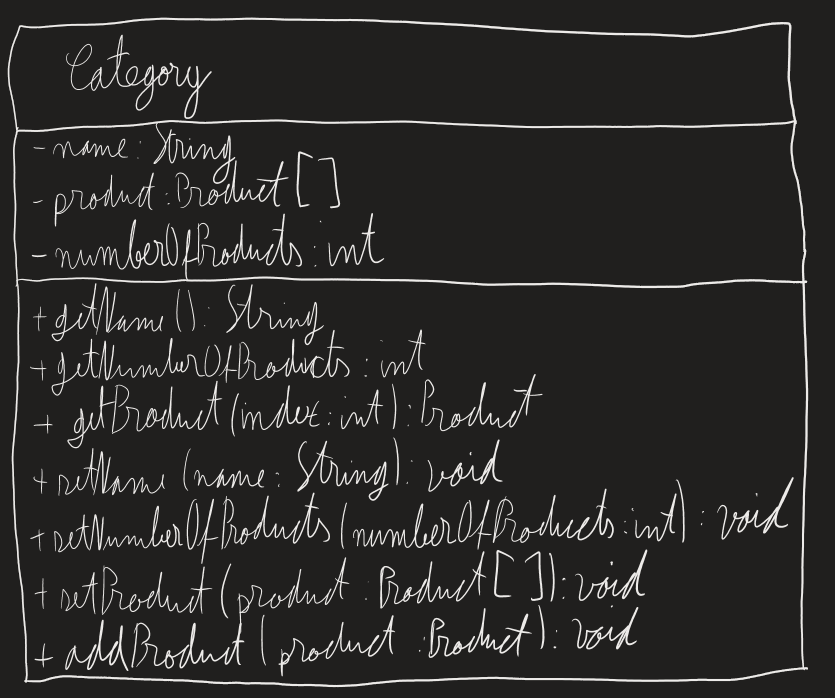 Category
- name : String
- product : Product []
- numberOfProducts : int
+ getName () : String
+ getNumberOfProducts : int
+ getProduct (index : int) : Product
+ setName (name : String) : void
+ setNumberOfProducts (numberOfProducts : int) : void
+ setProduct (product : Product []) : void
+ addProduct (product : Product) : void